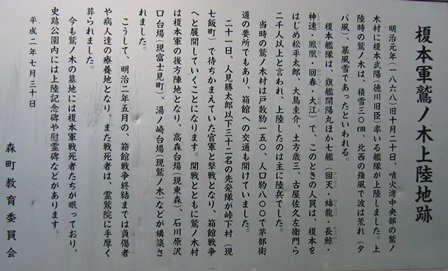 榎本軍鷲ノ木上陸地跡
明治元年(一八六八)十月二十日、噴火湾中央部の鷲ノ
木村に榎本武揚(徳川旧臣)率いる艦隊が上陸しました。上
陸時の鷲ノ木は、積雪三〇㎝、北西の強風で波は荒れ(夕
バ風)、暴風雪であったといわれる。
榎本艦隊は、旗艦開陽丸ほか七艦(回天・蟠龍・長鯨・
神速・鳳凰・回春・大江)で、このときの人員は、榎本を
はじめ松平太郎、大鳥圭介、土方歳三、古屋佐久左衛門ら
二千人以上と言われ、上陸したのは主に陸兵でした。
当時の鷲ノ木村は戸数約一五〇、人口約八〇〇で茅部街
道の要所でもあり、箱館への交通も開けていました。
二十一日、人見勝太郎以下三十二名の先発隊が峠下村(現
七飯町)で待ちかまえていた官軍と交戦となり、箱館戦争
へと展開していくことになります。開戦とともに鷲ノ木村
は榎本軍の後方陣地となり、高森台場(現東森)、石川原沢
口台場(現富士見町)、湯ノ崎台場(現鷲ノ木)などが構築さ
れました。
こうして、明治二年五月の、箱館戦争終結までは負傷者
や病人達の療養地となり、また戦死者は、霊鷲院に手厚く
葬られました。
今も鷲ノ木の墓地には榎本軍戦死者たちが眠っており、
史跡公園内には上陸記念碑や慰霊碑などがあります。
平成二年七月三十日
森町教育委員会